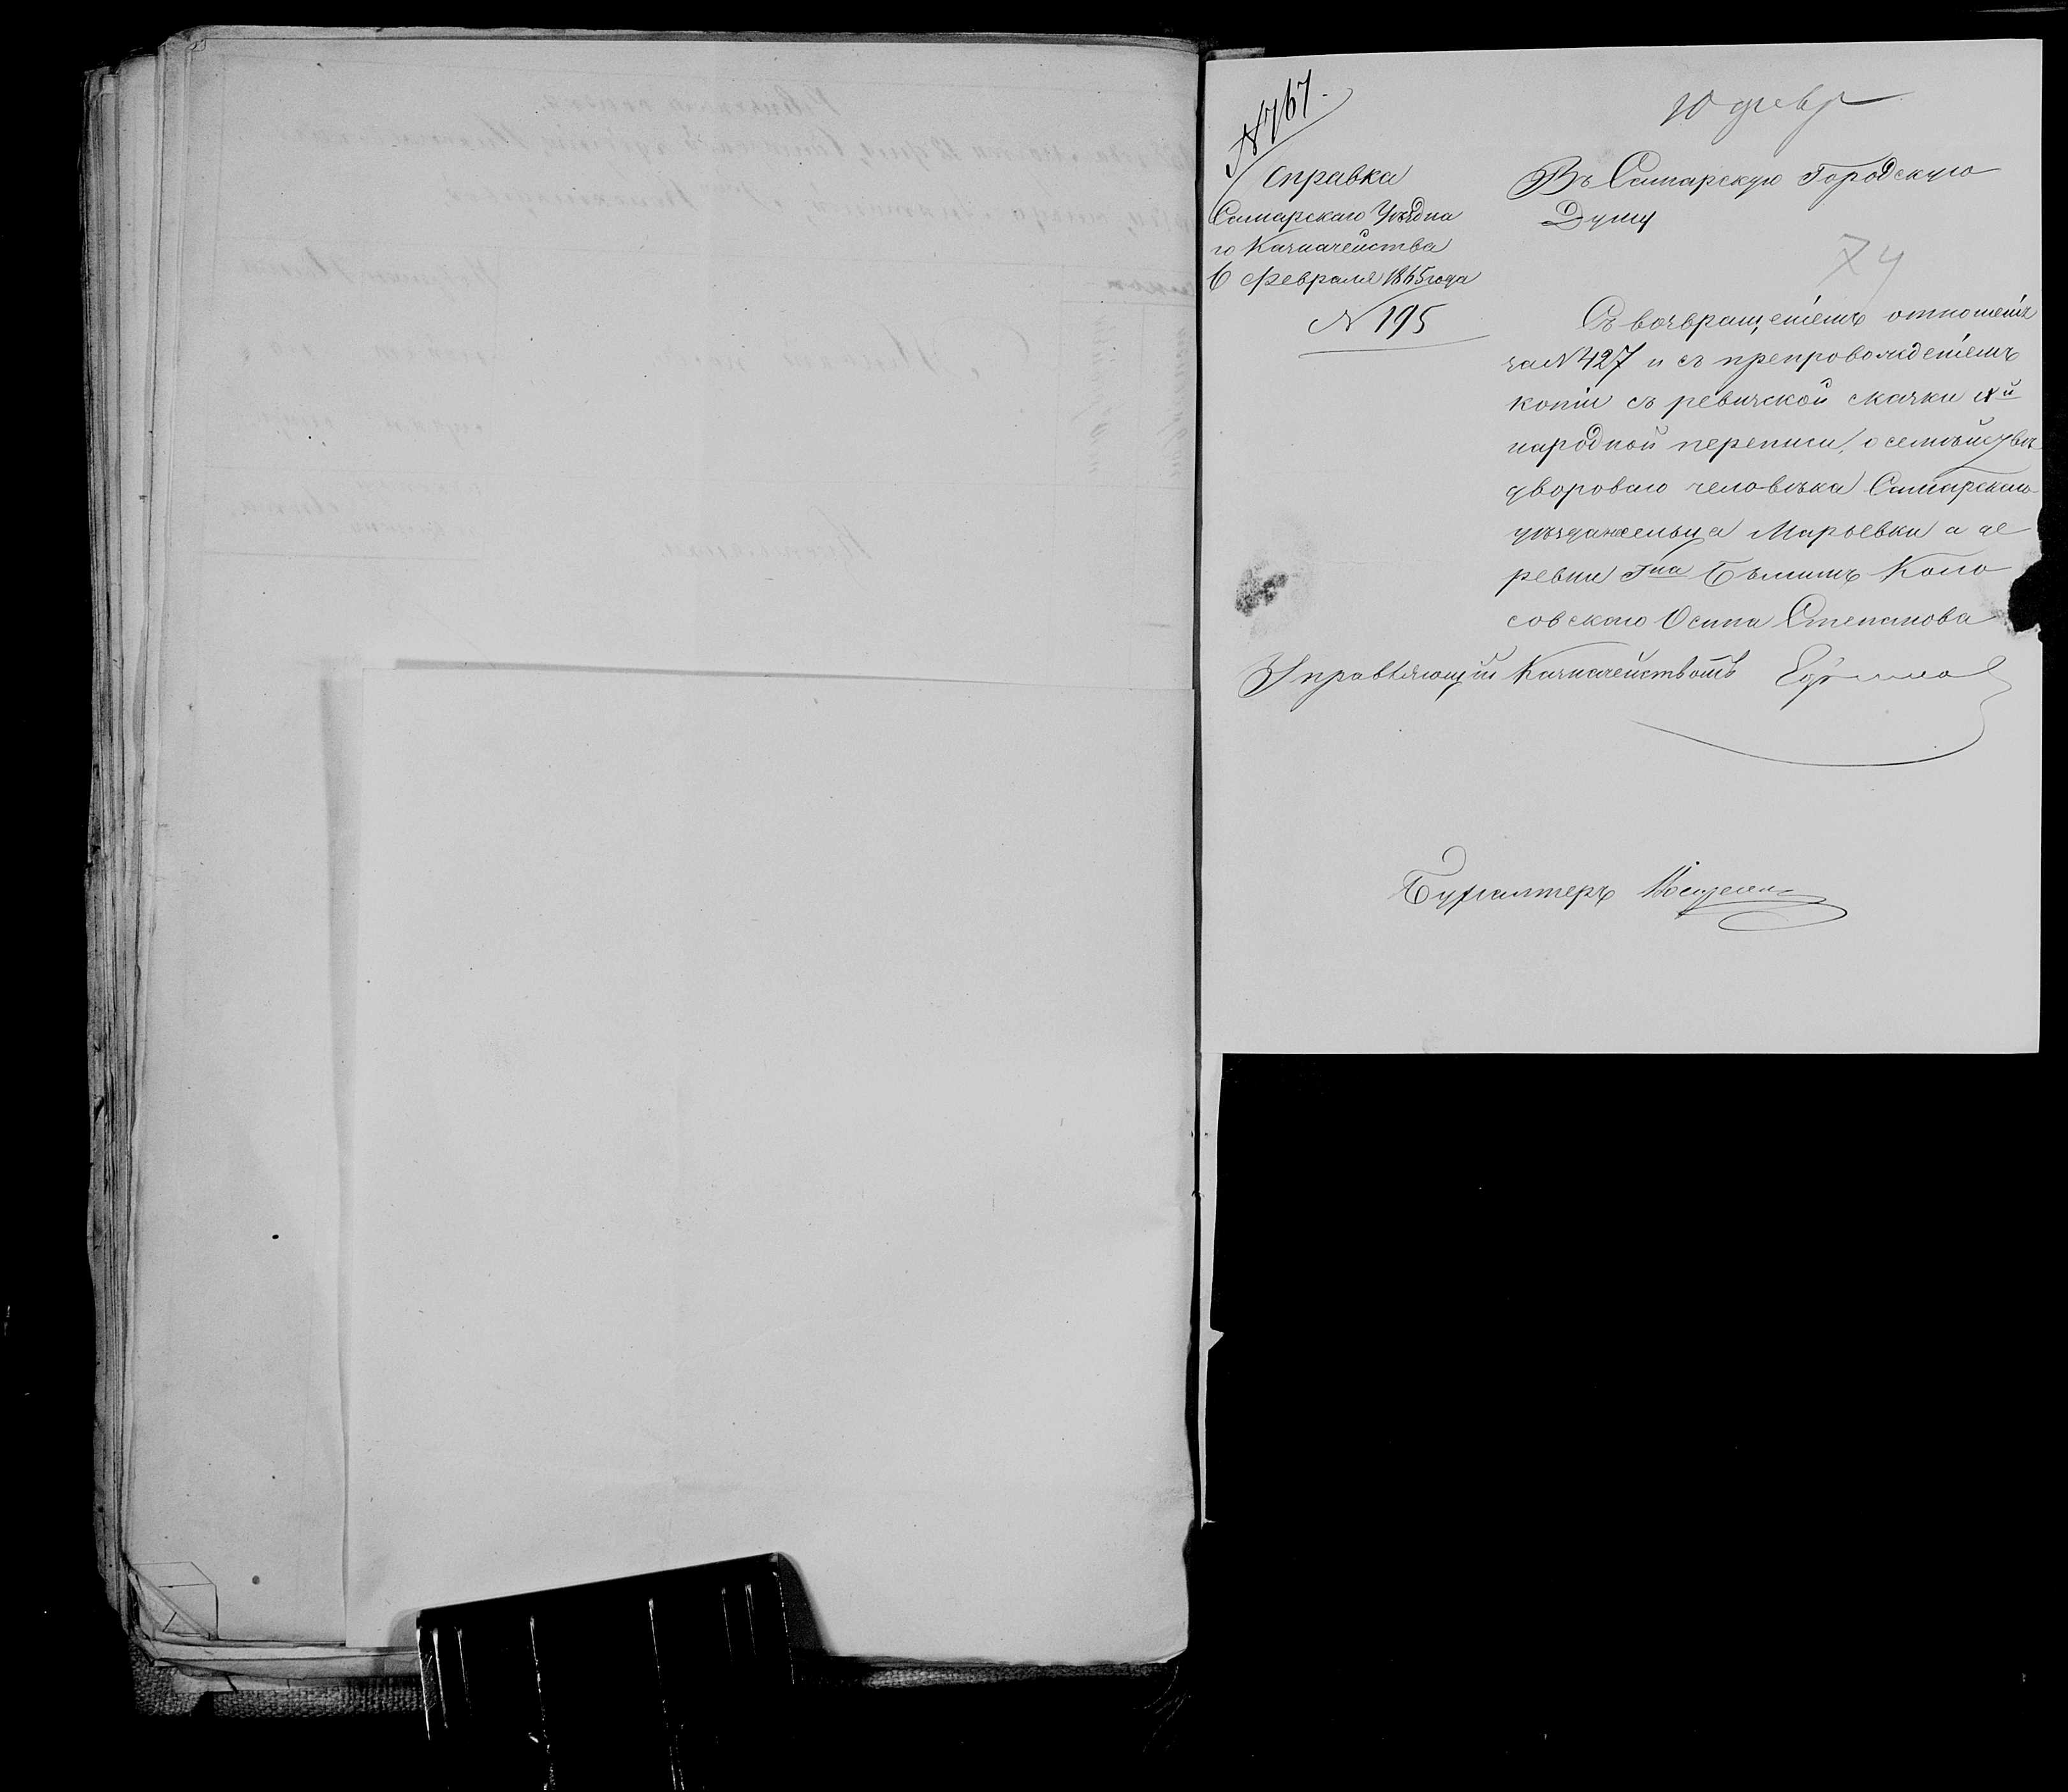 № 767.
10 февр
Справка
Самарскаго Уѣздна
го Казначейства
6 Февраля 1865 года
№ 195
Въ Самарскую Городскую
Думу
74
Съ возвращеніемъ отношенія
за № 427 и съ препровожденіемъ
копіи съ ревизской сказки Х й
народной переписи, о семействѣ
двороваго человѣка Самарскаго
уѣзда сельца Марьевки а де
ревни Г на Бѣлимъ Коло
совскаго Осипа Степанова
Управляющій Казначействомъ
Бухгалтеръ